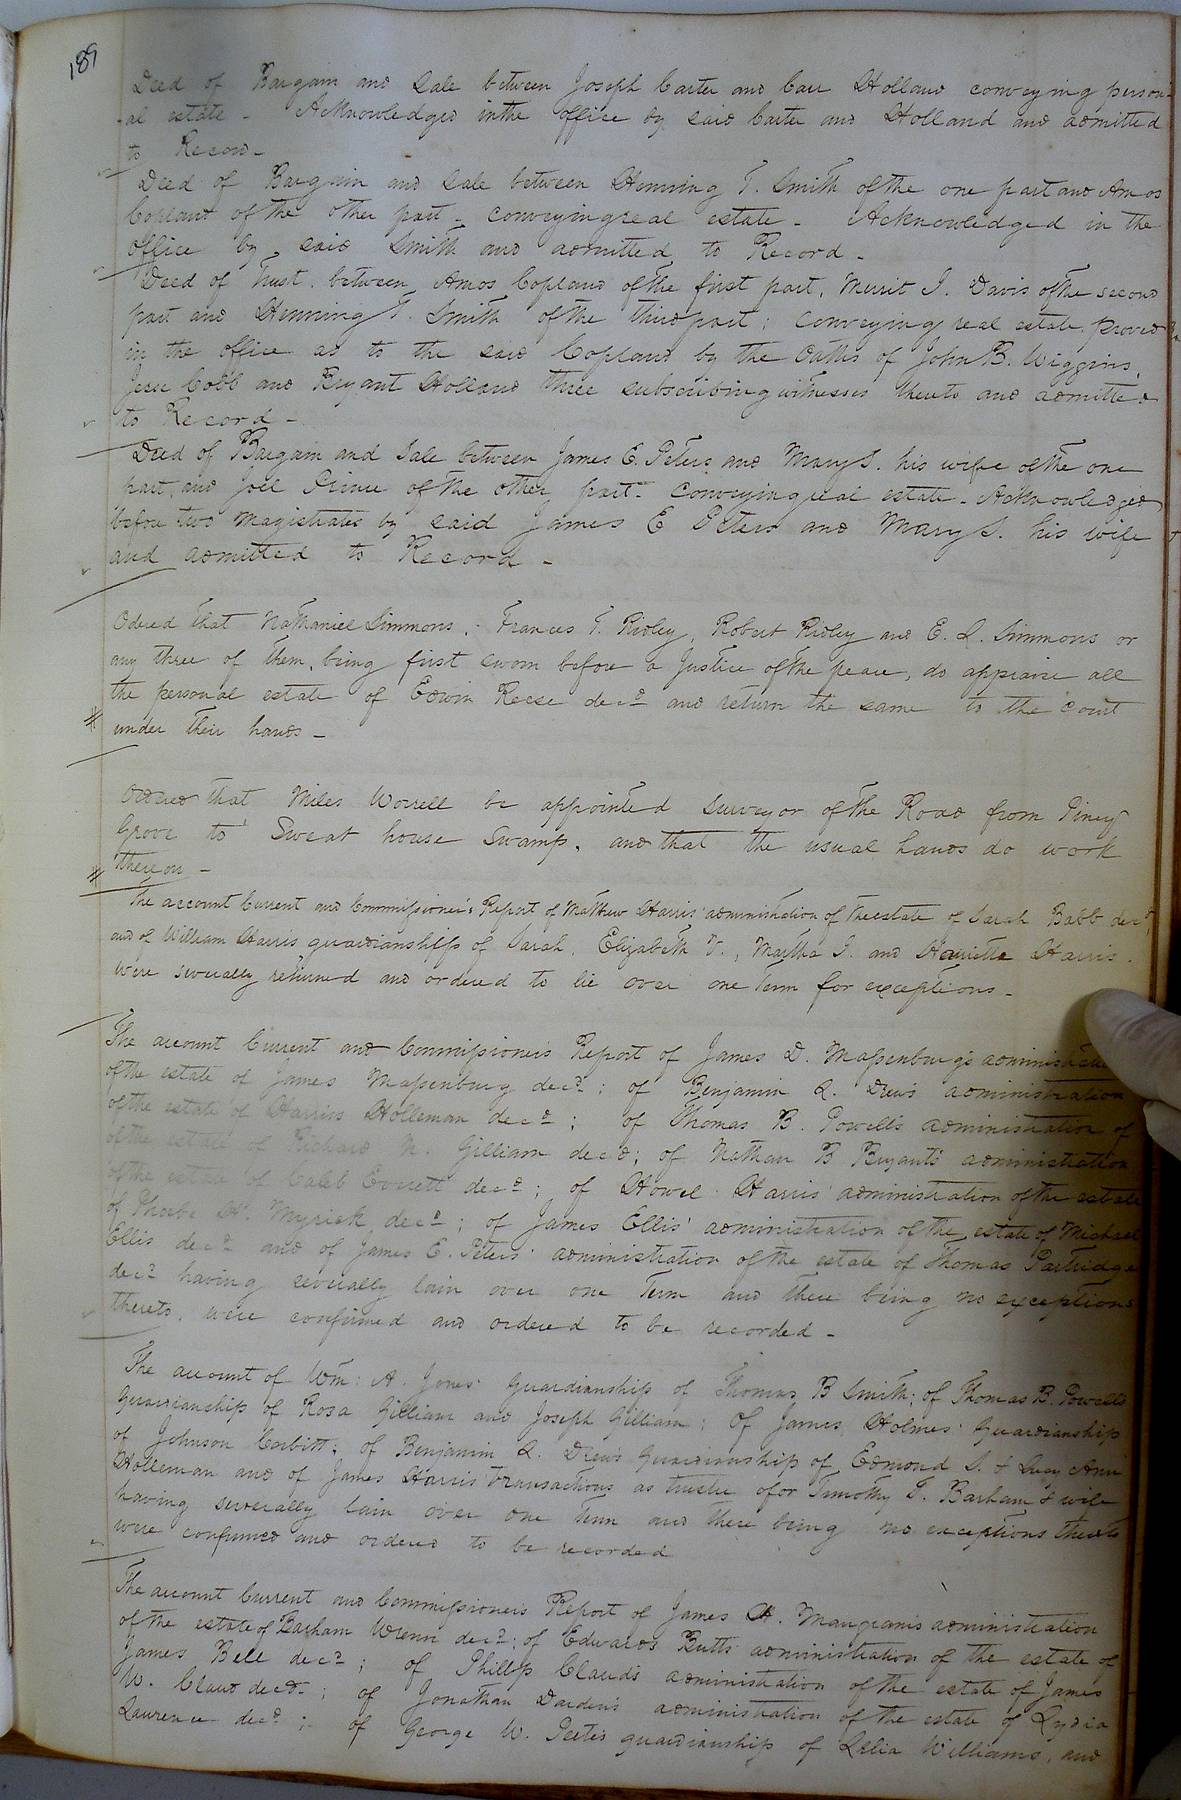 189
Deed of Bargain and Sale between Joseph Carter and Carr Holland conveying person-
-al estate - Acknowledged in the office by said Carter and Holland and admitted
to Record -
Deed of Bargain and Sale between Henning T. Smith of the one part and Amos
Copland of the other part - conveying real estate - Acknowledged in the
office by said Smith and admitted to Record -
Deed of Trust between Amos Copland of the first part, Merit I. Davis of the second
part and Henning T. Smith of the third part; conveying real estate proved
in the office as to the said Copland by the Oaths of John B. Wiggins,
Jesse Cobb and Bryant Holland three subscribing witnesses thereto and admitted
to Record -
Deed of Bargain and Sale between James E. Peters and Mary S. his wife of the one
part, and Joel Prince of the other part - Conveying real estate - Acknowledged
before two magistrates by said James E Peters and Mary S. his wife
and admitted to Record -
Odered that Nathaniel Simmons, Frances T. Ridley, Robert Ridley and E. L. Simmons or
any three of them, being first sworn before a Justice of the peace, do appraise all
the personal estate of Edwin Reese decd and return the same to the Court
under their hands -
Ordered that Miles Worrell be appointed surveyor of the Road from Piney
Grove to Sweat house Swamp, and that the usual hands do work
thereon -
The account Current and Commissioner's Report of Matthew Harris' administration of the estate of Sarah Babb decd,
and of William Harris guardianships of Sarah, Elizabeth V., Martha I. and Harriette Harris.
were severally returned and ordered to lie over one Term for exceptions -
The account Current and Commissioner's Report of James D. Massenburg's administration
of the estate of James Massenburg decd; of Benjamin L. Drew's administration
of the estate of Harriss Holleman decd; of Thomas B. Powell's administration of
of the estate of Richard N. Gilliam decd; of Nathan B Bryant's administration
of the estate of Caleb Everett decd; of Howel Harris' administration of the estate
of Phoebe Myrick decd; of James Ellis' administration of the estate of Michael
Ellis decd and of James E. Peters' administration of the estate of Thomas Partridge
decd having severally lain over one Term and there being no exceptions
thereto, were confirmed and ordered to be recorded -
The account of Wm: A. Jones' guardianship of Thomas B Smith; of Thomas B. Powell's
guardianship of Rosa Gilliam and Joseph Gilliam; Of James Holmes' guardianship
of Johnson Corbitt; of Benjamin L. Drew's guardianship of Edmond S. & Lucy Ann
Holleman and of James Harris' transactions as trustee of for Timothy T. Barham & wife
having severally lain over one Term and there being no exceptions thereto
were confirmed and ordered to be recorded
The account Current and Commissioner's Report of James H. Mangram's administration
of the estate of Barham Wrenn decd; of Edwards Butts' administration of the estate of
James Bell decd; of Phillip Claud's administration of the estate of James
W. Claud decd; of Jonathan Darden's administration of the estate of Lydia
Laurence decd; of George W. Peete's guardianship of Lelia Williams, and